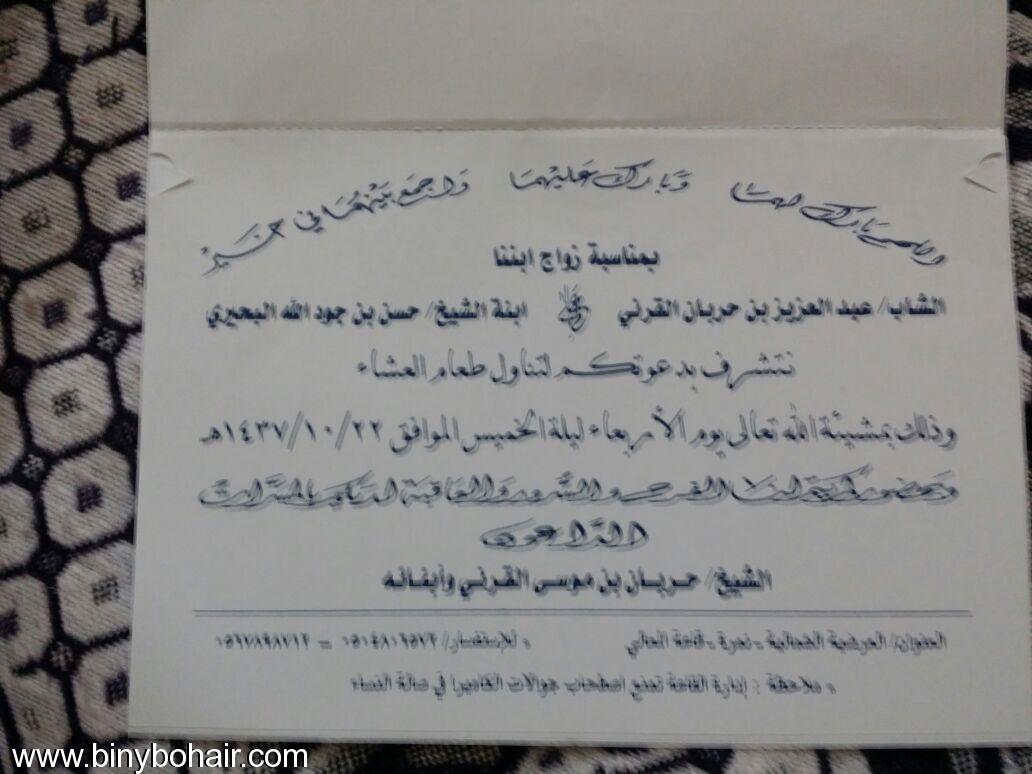 اللهم بارك لهما وبارك عليهما واجمع بينهما في خير
بمناسبة زواج ابننا
الشاب/ عبد العزيز بن حربان القرني على ابنة الشيخ/ حسن بن جود الله البحيري
نتشرف بدعوتكم لتناول طعام العشاء
وذلك بمشيئة الله تعالى يوم الأربعاء ليلة الخميس الموافق ١٤٣٧/١٠/٢٢هـ
وبحضوركم يتم لنا الفرح والسرور والعاقبة لديكم بالمسرات
الداعون
الشيخ/ حربان بن موسى القرني وأبنائه
العنوان/ العرضية الشمالية - نمرة - قاعة
للإستفسار/
ملاحظة : إدارة القاعة تمنع اصطحاب جوالات الكاميرا في صالة النساء
www.binybohair.com